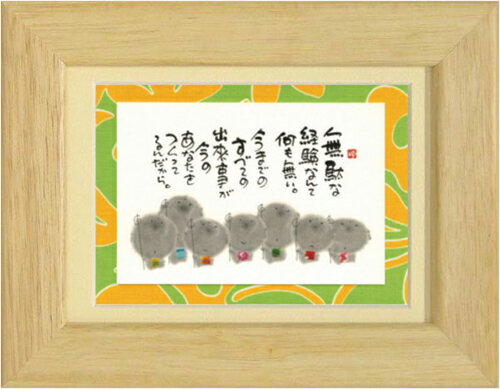 無駄な
経験なんて
何も無い。
今までの
すべての
出来事が
今の
あなたを
つくって
るんだから。